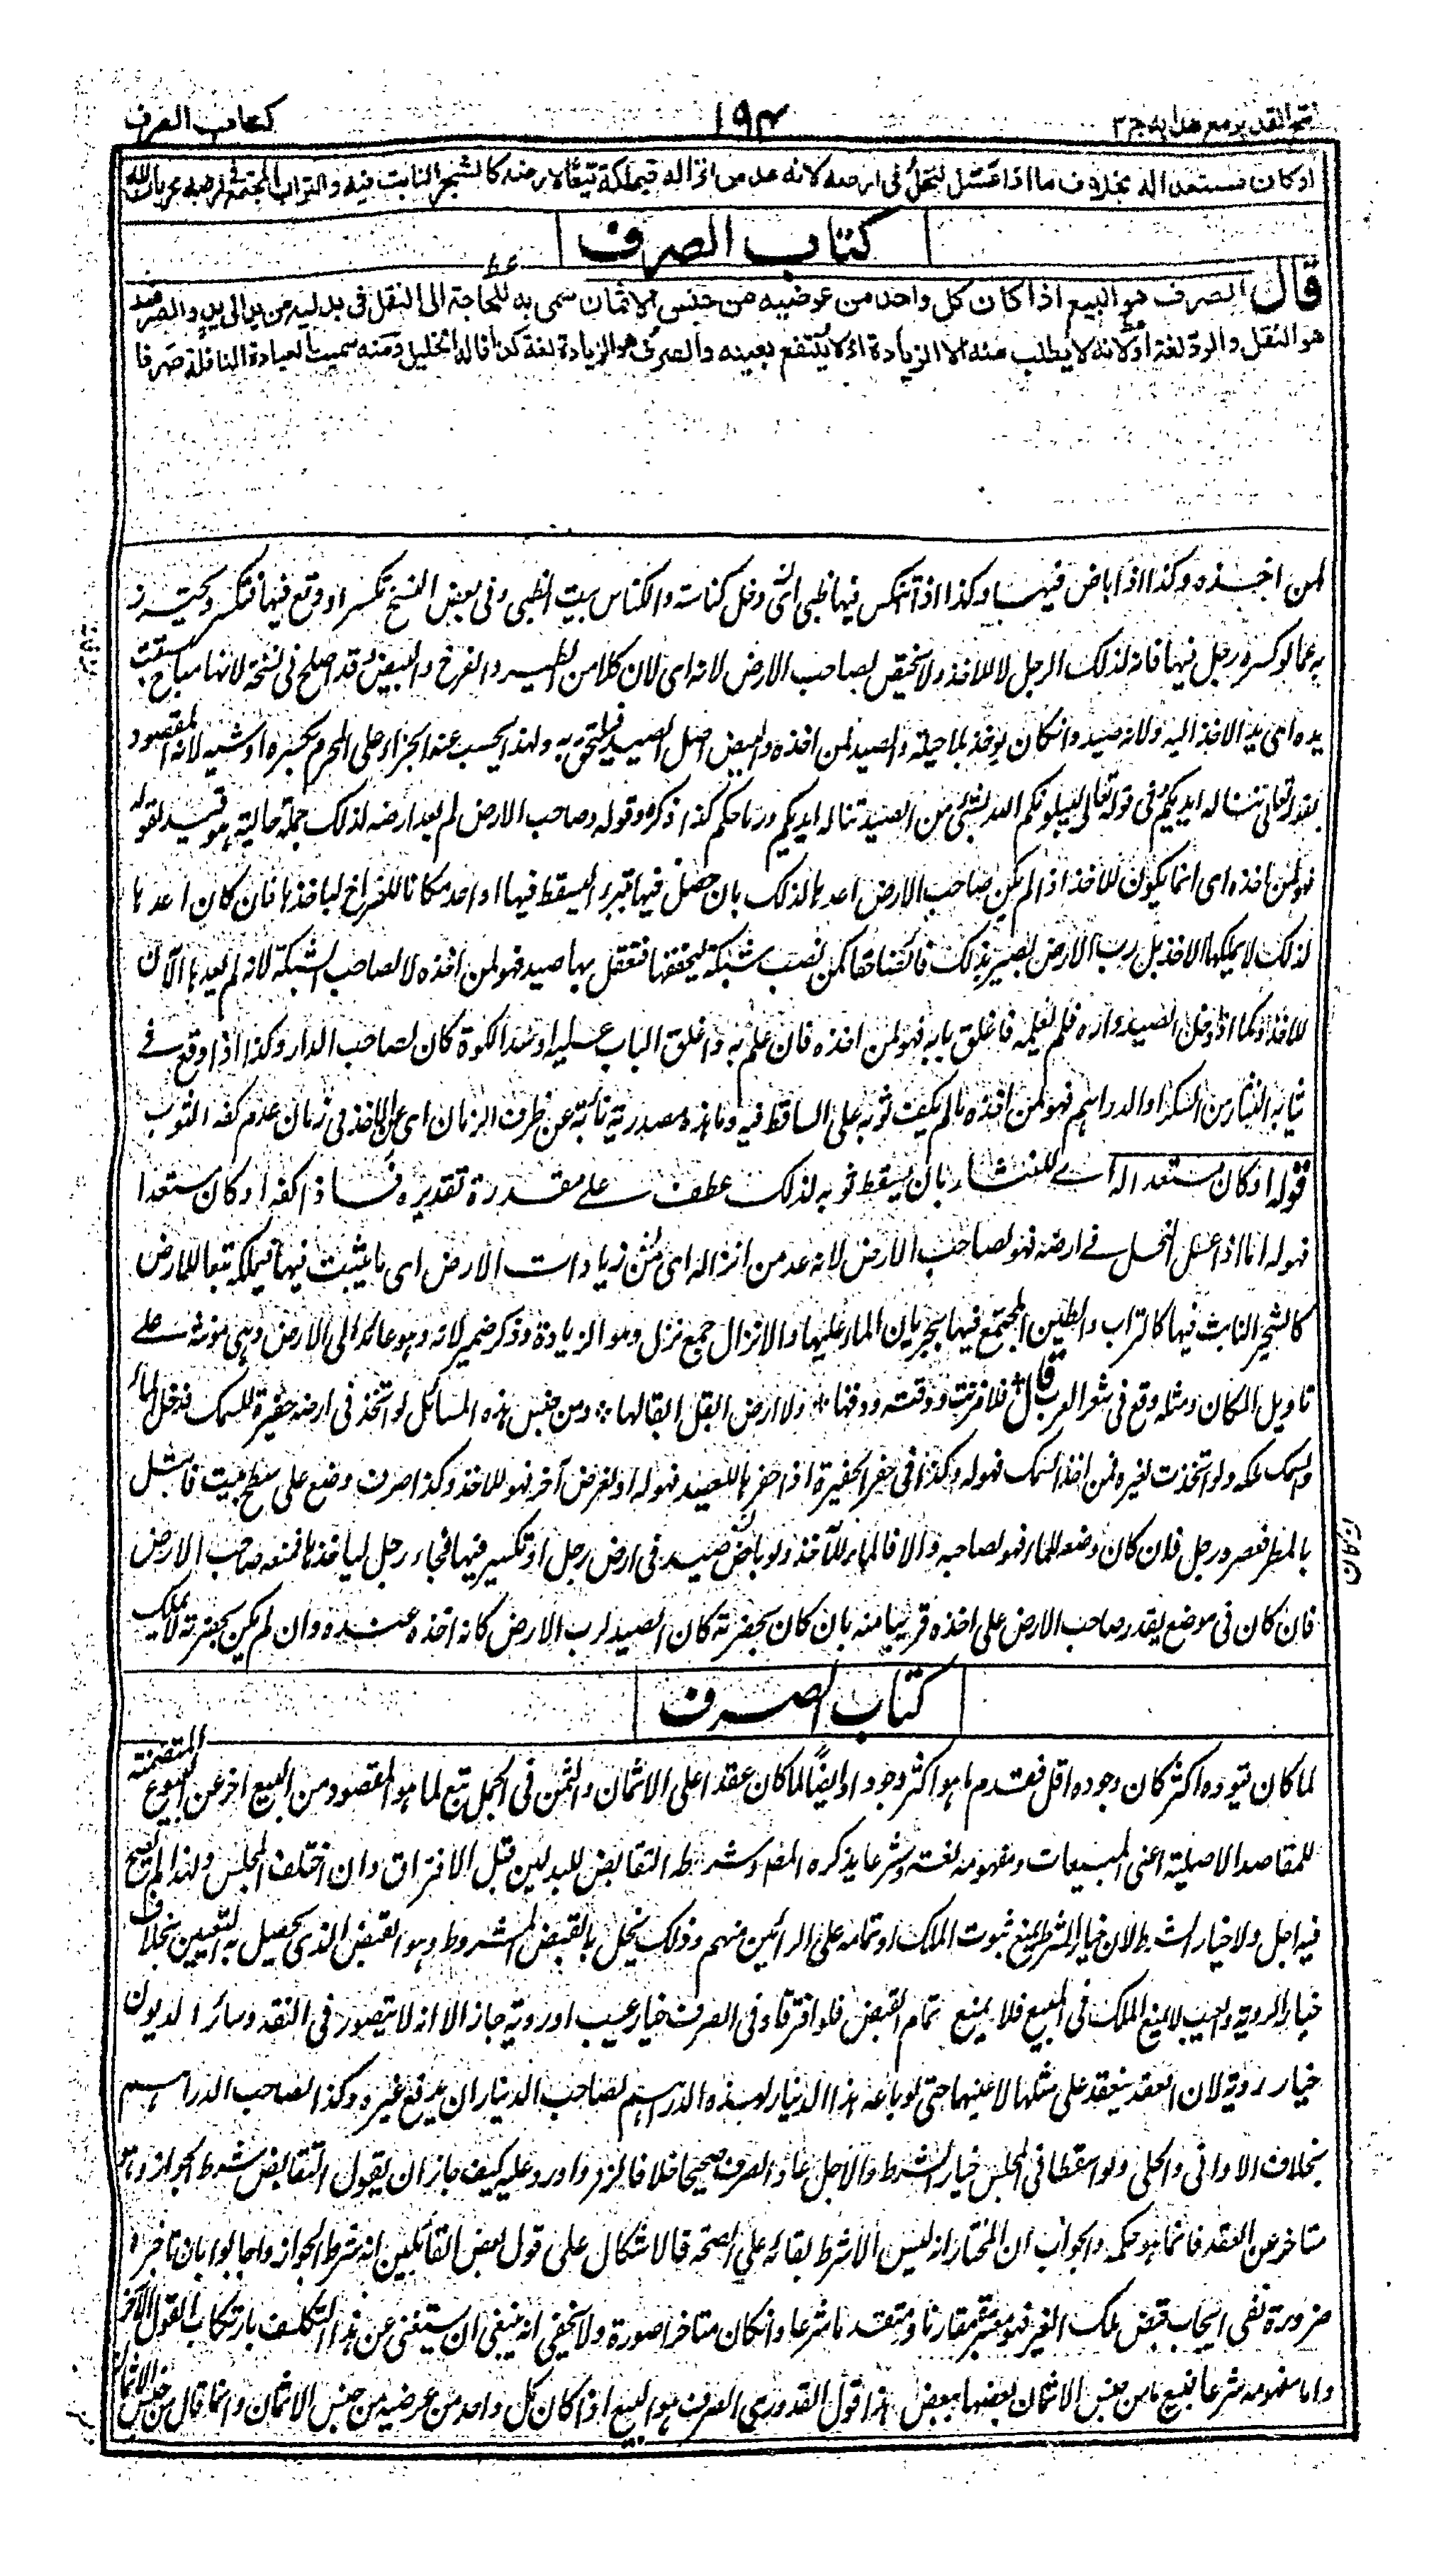 فتح القدير مع هدايه ج ٣
١٩٤
كتاب الصرف
او كان مستعدا له بخلاف ما اذا عسل النحل فى ارضه لانه عد من انزاله فيملكه تبعًا لارضه كالشجر النابت فيه والتراب المجتمع فى ارضه بجريان الماء
كتاب الصرف
قال الصرف هو البيع اذا كان كل واحد من عوضيه من جنس الاثمان سمى به للحاجة الى النقل فى بدليه من يد الى يد والصرف
هو النقل والرد لغة اولانه لا يطلب منه الا الزيادة اذ لا ينتفع بعينه والصرف هو الزيادة لغة كذا قاله الخليل ومنه سميت العبادة النافلة صرفا
لمن اخذه وكذا اذا باض فيها وكذا اذا تكنس فيها ظبى اى دخل كناسه والكناس بيت الظبى وفى بعض النسخ تكسر او وقع فيها فتكسر ويحترز
به عما لو كسره رجل فيها فانه لذلك الرجل لا للاخذ ولا يختص بصاحب الارض لانه اى لان كلا من الطير والفرخ والبيض وقد اصلح فى نسخة لانها مباح سبقت
يده اى يد الاخذ اليه ولانه صيد وان كان يوخذ بلا حيلة والصيد لمن اخذه والبيض اصل الصيد فيلتحق به ولهذا يجب عند الجزاء على المحرم بكسره او شيه لانه المقصود
بقوله تعالى تناله ايديكم فى قوله تعالى ليبلونكم الله بشئ من الصيد تناله ايديكم ورماحكم كذا ذكره وقوله وصاحب الارض لم يعد ارضه لذلك جملة حالية هو قيد لقوله
فهو لمن اخذه اى انما يكون للاخذ اذا لم يكن صاحب الارض اعدها لذلك بان حفر فيها بئرا ليسقط فيها او اعد مكانا للفراخ لياخذها فان كان اعدها
لذلك لا يملكها الاخذ بل رب الارض يصير بذلك قابضا حكما كمن نصب شبكة ليجففها فتعقل بها صيد فهو لمن اخذه لا لصاحب الشبكة لانه لم يعدها الآن
للاخذ وكما اذا دخل الصيد داره فلم يعلم به فاغلق بابه فهو لمن اخذه فان علم به واغلق الباب عليه او سد الكوة كان لصاحب الدار وكذا اذا وقع فى
ثيابه النثار من السكر او الدراهم فهو لمن اخذه ما لم يكف ثوبه على الساقط فيه وما هذه مصدرية نائبة عن ظرف الزمان اى هو للاخذ فى زمان عدم كفه الثوب
قوله او كان مستعدا له اى للنثار بان بسط ثوبه لذلك عطف على مقدرة تقديره فاذا كفه او كان مستعدا
فهو له اما اذا عسل النحل فى ارضه فهو لصاحب الارض لانه عد من انزاله اى من زيادات الارض اى ما يثبت فيها فيملكه تبعا للارض
كالشجر النابت فيها كالتراب والطين المجتمع فيها بجريان الماء عليها والانزال جمع نزل وهو الزيادة وذكر ضمير لانه وهو عائد الى الارض وهى مؤنثة على
تاويل المكان ومثله وقع فى شعر العرب قال فلا مزنة ودقت ودقها ÷ ولا ارض ابقل ابقالها ÷ ومن جنس هذه المسائل لو اتخذ فى ارضه حفيرة للسمك فدخل الماء
والسمك ملكه ولو اتخذت لغيره فمن اخذ السمك فهو له وكذا فى حفر الحفيرة اذا حفرها للصيد فهو له او لغرض آخر فهو للاخذ وكذا صوف وضع على سطح بيت فابتل
بالمطر فعصره رجل فان كان وضعه للماء فهو لصاحبه والا فالماء للآخذ ولو باض صيد فى ارض رجل او تكسر فيها فجاء رجل لياخذها فمنعه صاحب الارض
فان كان فى موضع يقدر صاحب الارض على اخذه قريبا منه بان كان بحضرته كان الصيد لرب الارض كانه اخذه عنده وان لم يكن بحضرته لا يملك
كتاب الصرف
لما كان قيوده اكثر كان وجوده اقل فقدم ما هو اكثر وجودا وايضًا لما كان عقدا على الاثمان والثمن فى الجملة تبع لما هو المقصود من البيع اخر عن البيوع المتضمنة
للمقاصد الاصلية اعنى المبيعات ومفهومه لغة وشرعا يذكره المصنف وشرطه التقابض للبدلين قبل الافتراق وان اختلف المجلس ولهذا لم يصح
فيه اجل ولا خيار الشرط لان خيار الشرط يمنع ثبوت الملك او تمامه على الرائين منهم وذلك يخل بالقبض المشروط وهو القبض الذى يحصل به التعيين بخلاف
خيار الروية والعيب لا يمنع الملك فى المبيع فلا يمنع تمام القبض فلو افترقا وفى الصرف خيار عيب او روية جاز الا انه لا يتصور فى النقد وسائر الديون
خيار روية لان العقد ينعقد على مثلها لا عينها حتى لو باعه هذا الدينار بهذه الدراهم لصاحب الدينار ان يدفع غيره وكذا لصاحب الدراهم
بخلاف الاوانى والحلى ولو اسقطا فى المجلس خيار الشرط والاجل عاد الصرف صحيحا خلافا لزفر واورد عليه كيف جاز ان يقول التقابض شرط الجواز وهو
متاخر عن العقد فانما هو حكمه والجواب ان المختار انه ليس الا شرط بقائه على الصحة فالاشكال على قول بعض القائلين انه شرط الجواز واجابوا بان تاخره
ضرورة نفى ايجاب قبض ملك الغير فهو معتبر مقارنا ومتقدما شرعا وان كان متاخرا صورة ولا يخفى انه ينبغى ان يستغنى عن هذا التكلف بارتكاب القول الآخر
واما مفهومه شرعا فبيع ما من جنس الاثمان بعضها ببعض هذا قول القدورى الصرف هو البيع اذا كان كل واحد من عوضيه من جنس الاثمان وانما قال من جنس الاثمان